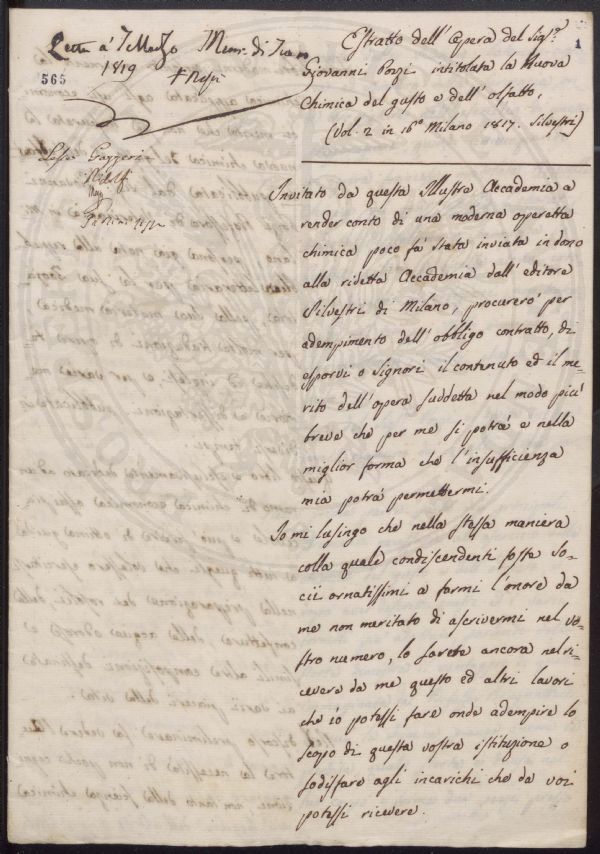 Letta a' 7 Marzo
1819
565
1
Estratto dell'Opera del Sigr.
Giovanni Pozzi intitolata la Nuova
Chimica del gusto e dell'olfatto,
(Vol. 2 in 16º Milano 1817. Silvestri)
Invitato da questa Illustre Accademia a
render conto di una moderna operetta
chimica poco fà stata inviata in dono
alla ridetta Accademia dall'editore
Silvestri di Milano, procurerò per
adempimento dell'obbligo contratto, di
esporvi o Signori il contenuto ed il me-
rito dell'opera suddetta nel modo più
breve che per me si potrà e nella
miglior forma che l'insufficienza
mia potrà permettermi.
Io mi lusingo che nella stessa maniera
colla quale condiscendenti foste So-
cii ornatissimi a farmi l'onore da
me non meritato di ascrivermi nel vo-
stro numero, lo sarete ancora nel ri-
cevere da me questo ed altri lavori
che io potessi fare onde adempire lo
scopo di questa vostra istituzione o
sodisfare agli incarichi che da voi
potessi ricevere.